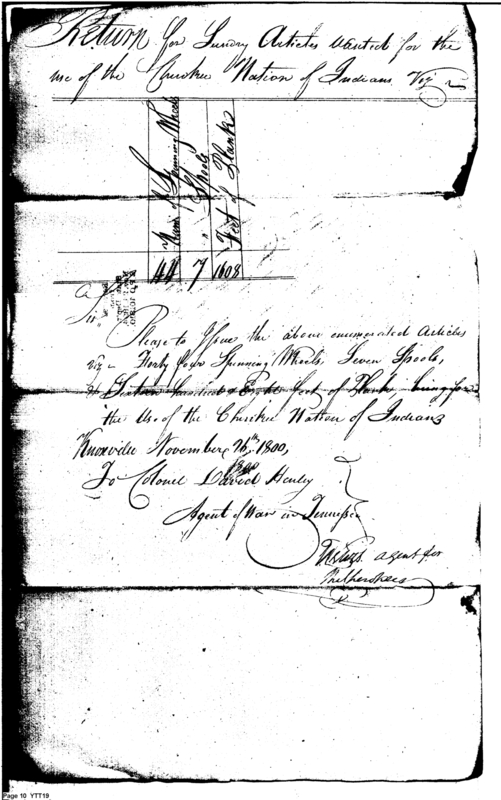 Return for Sundry Articles Wanted for the
use of the Cherokee Nation of Indians Viz
Num. of Spinning Wheels
Spools
Feet of Plank
44 7 1608
Sir
Please to Issue the above enumerated Articles
viz Forty four Spinning Wheels Seven Spools,
& Sixteen hundred & Eight feet of Plank being for
the Use of the Cherokee Nation of Indians
Knoxville November 26th, 1800,
To Colonel David Henley
Agent of War in Tennessee
agent for
the Cherokees
Page 10 YTT19